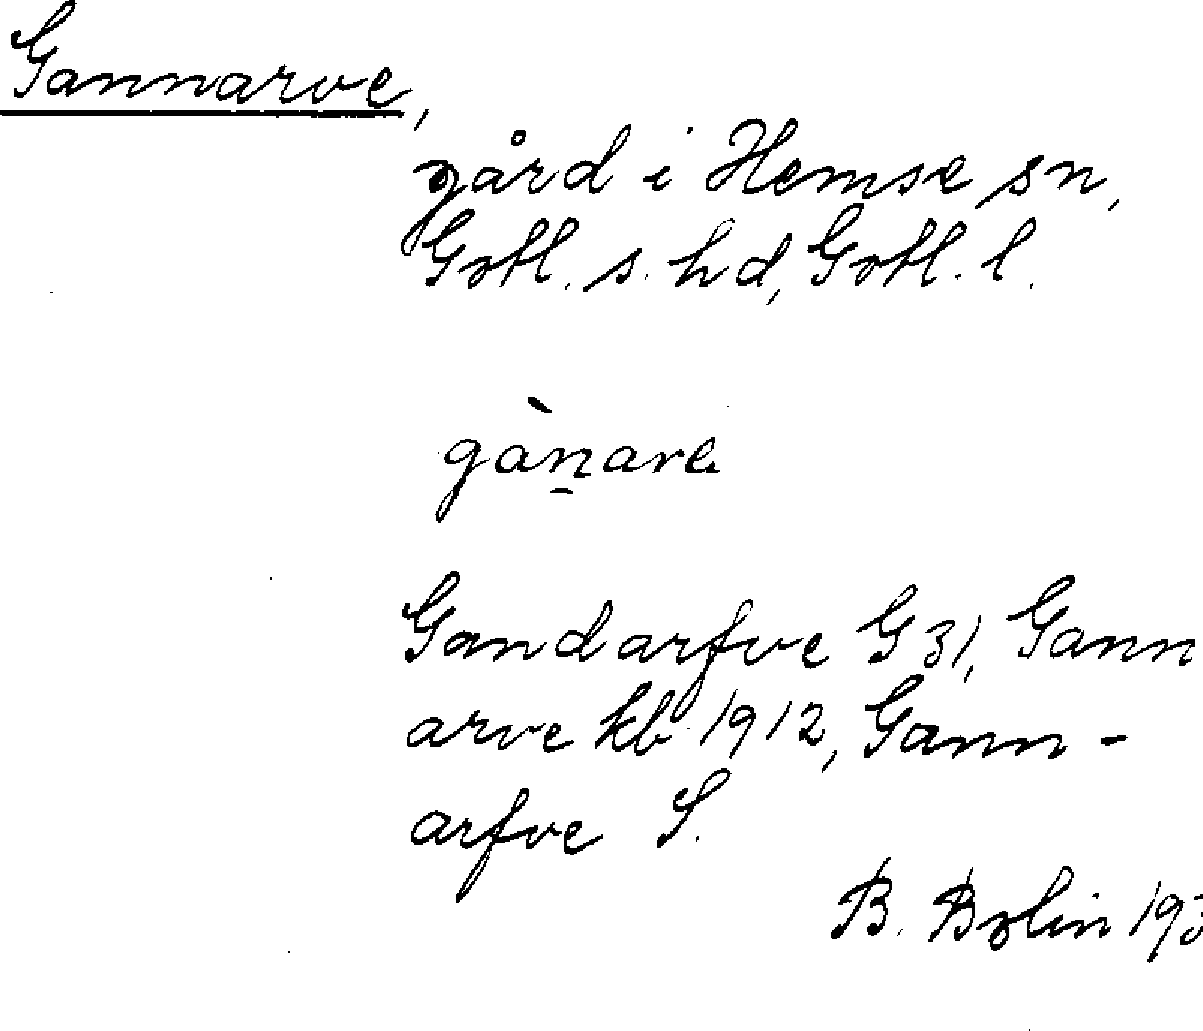 Gannarve,
gård i Hemse sn,
Gotl. s. hd, Gotl. l.
gà̱nare
Gandarfve G 31, Gann
arve kb 1912, Gann-
arfve S.
B. Bolin 193